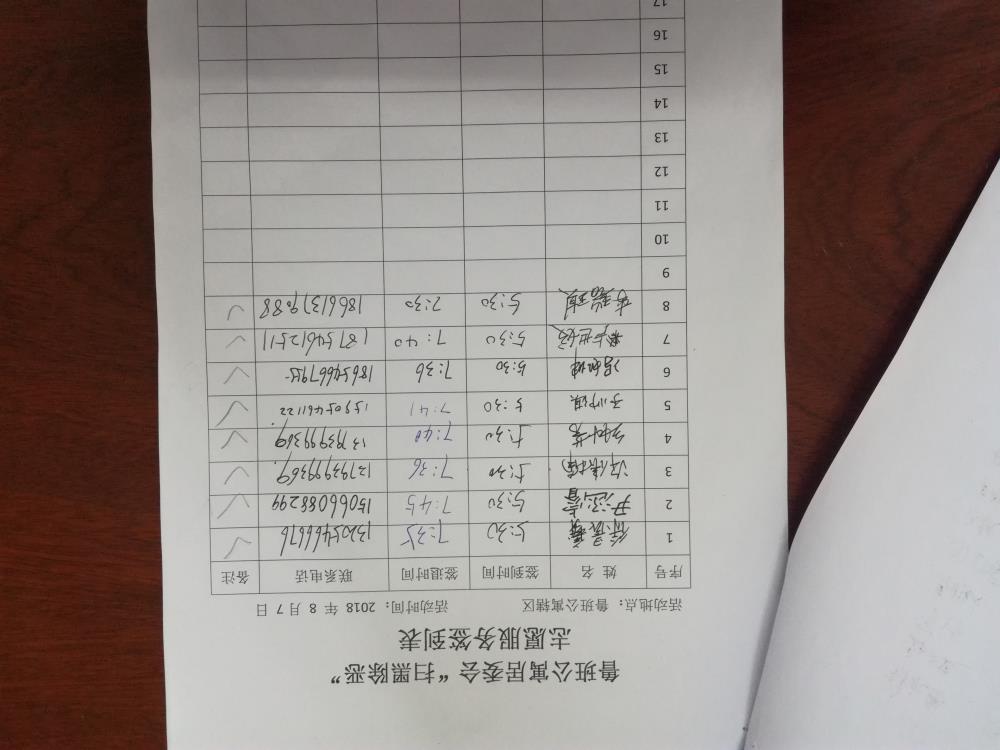 鲁班公寓居委会“扫黑除恶”
志愿服务签到表
活动地点：鲁班公寓辖区 活动时间：2018 年 8 月 7 日
序号 姓 名 签到时间 签退时间 联系电话 备注
1 5:30 7:35 13205466676
2 尹 5:30 7:45 15066088299
3 5:30 7:36 13793999369
4 5:30 7:40 13793999369
5 5:30 7:41 15905461122
6 5:30 7:36
7 5:30 7:40 18754612511
8 李 5:30 7:30 18661379088
9
10
11
12
13
14
15
16
17